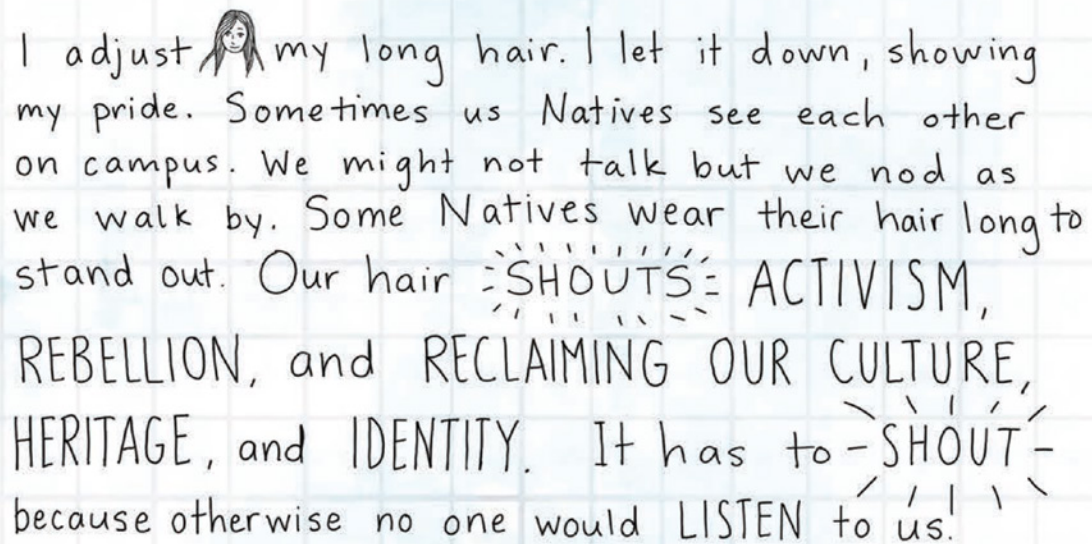 I adjust my long hair. I let it down, showing
my pride. Sometimes us Natives see each other
on campus. We might not talk but we nod as
we walk by. Some Natives wear their hair long to
stand out. Our hair SHOUTS ACTIVISM,
REBELLION, and RECLAIMING OUR CULTURE,
HERITAGE, and IDENTITY. It has to - SHOUT -
because otherwise no one would LISTEN to us!